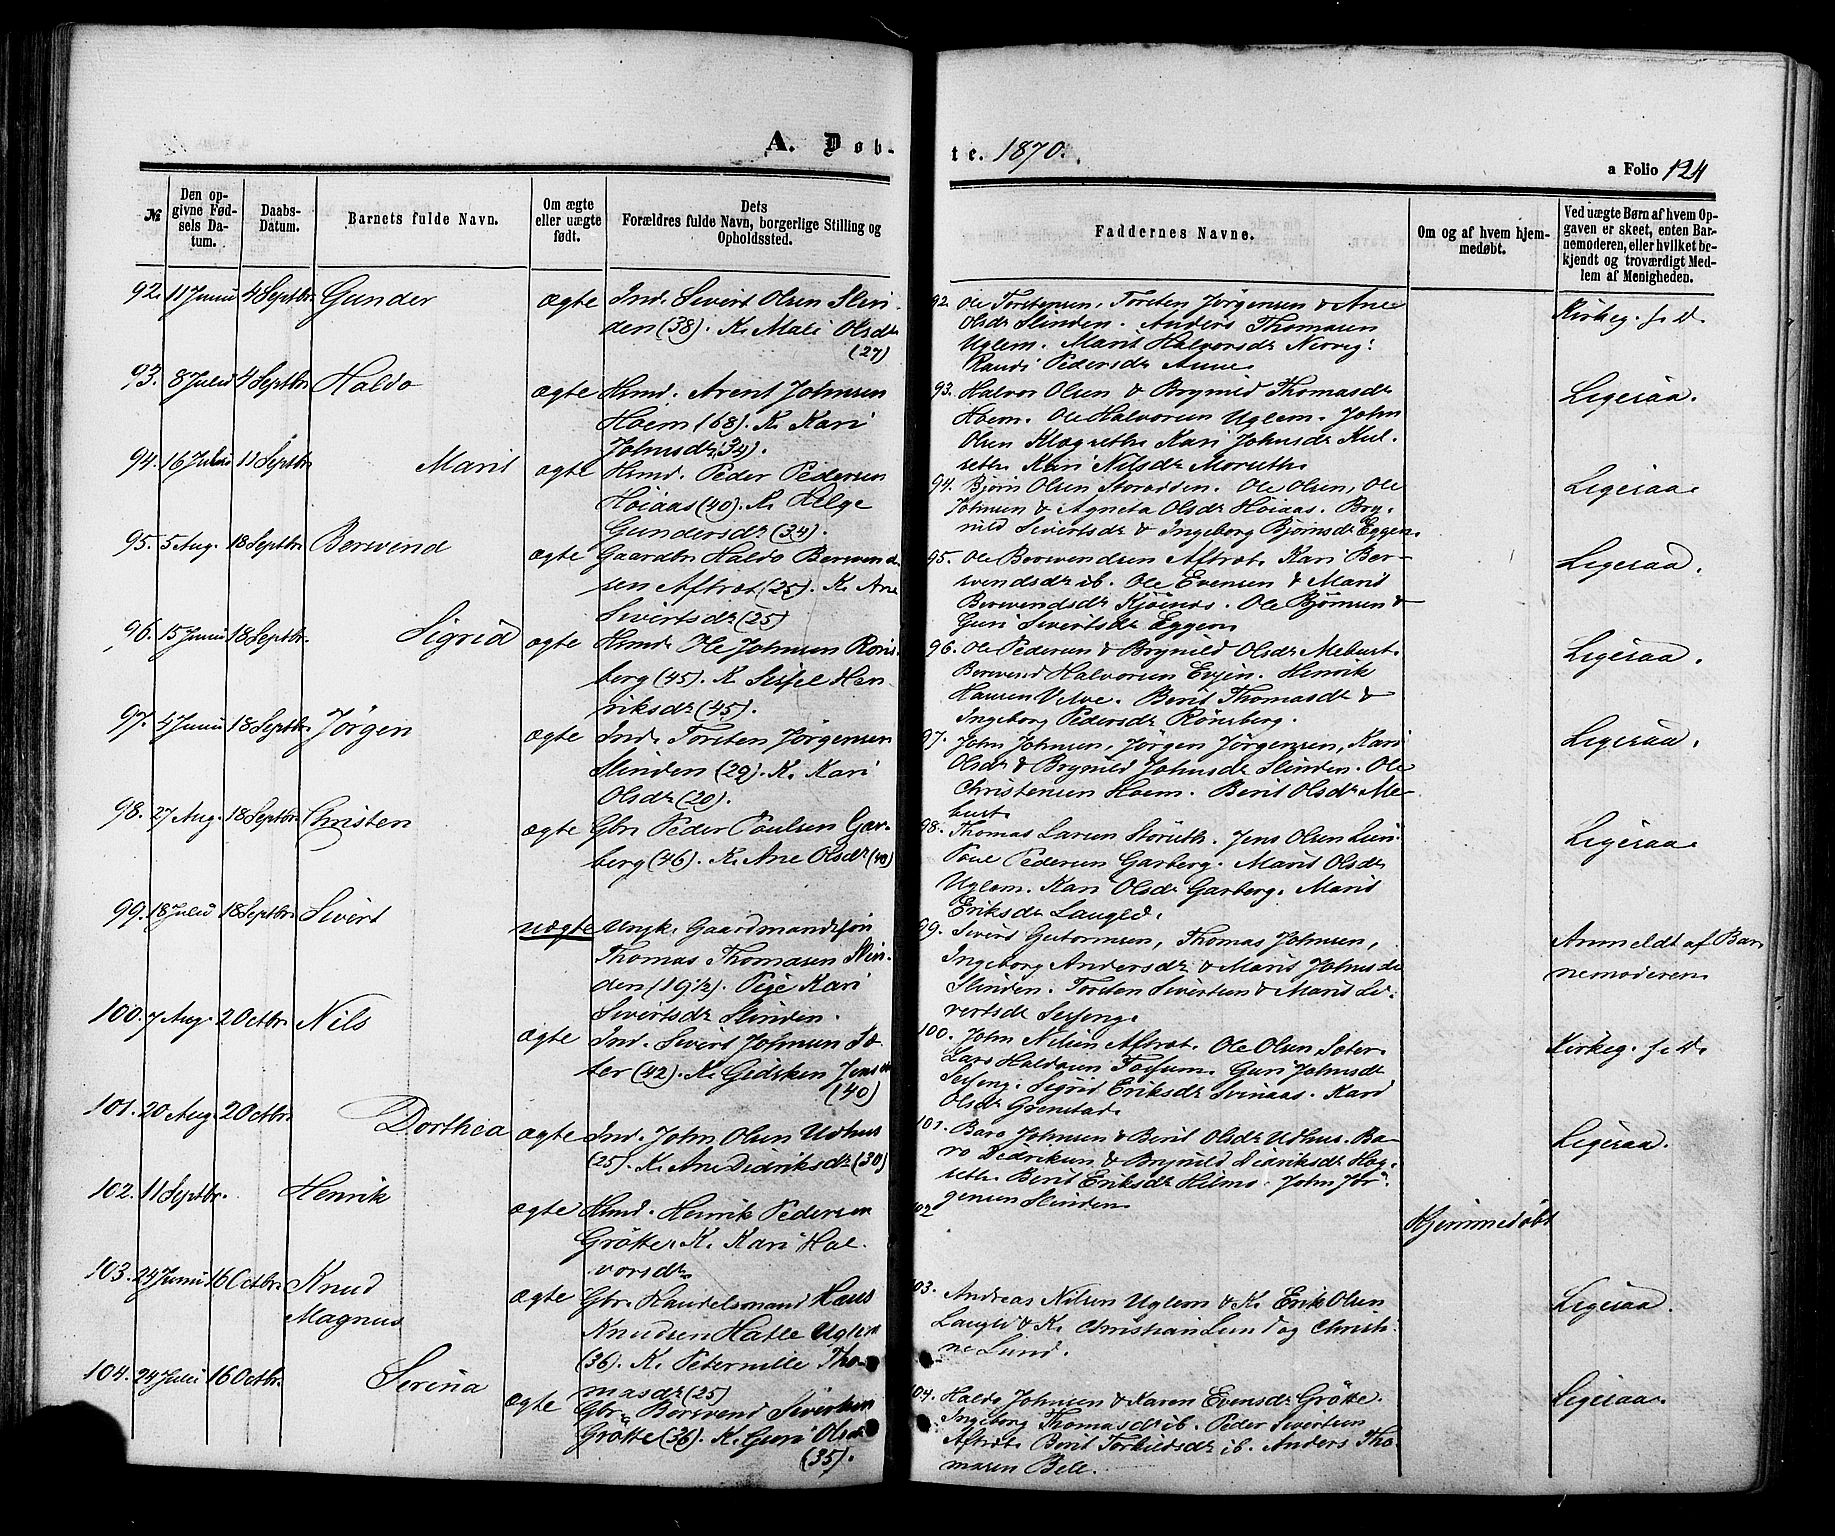 A. Døb-
te. 1870.
a Folio 124
№
Den op-
givne Fød-
sels Da-
tum.
Daabs-
Datum.
Barnets fulde Navn.
Om ægte
eller uægte
født.
Dets
Forældres fulde Navn, borgerlige Stilling og
Opholdssted.
Faddernes Navne.
Om og af hvem hjem-
medøbt.
Ved uægte Børn af hvem Op-
gaven er skeet, enten Bar-
nemoderen, eller hvilket be-
kjendt og troværdigt Med-
lem af Menigheden.
92. 11 Juni 4 Septbr. Gunder ægte
Ind. Sivert Olsen Slin-
den (38). K. Mali Olsdr
(27)
92. Ole Torstensen, Torsten Jørgensen & Ane
Olsdr Slinden. Anders Thomasen
Uglem. Marit Halvorsdr Nervig.
Randi Pedersdr Aune.
Kirkeg. f. D.
93. 8 Juli 4 Septbr. Haldo ægte
Hsmd. Arent Johnsen
Hoem (68). K. Kari
Johnsdr (34).
93. Halvor Olsen & Brynild Thomasdr
Hoem. Ole Halvorsen Uglem. John
Olsen Klegseth. Kari Johnsdr Kul-
seth. Kari Nilsdr Moruth.
Ligesaa.
94. 16 Juli 11 Septbr Marit ægte
Hsmd. Peder Pedersen
Høiaas (40). K. Helge
Gundersdr (34).
94. Bjørn Olsen Storødden. Ole Olsen, Ole
Johnsen & Agneta Olsdr Høiaas. Bry-
nild Sivertsdr & Ingeborg Bjørnsdr Eggen.
Ligesaa
95. 5 Aug. 18 Septbr. Berevend ægte
Gaardbr. Haldo Berevend-
sen Aftret (25). K. Ane
Sivertsdr (25)
95. Ole Berevendsen Aftret. Kari Ber-
evendsdr ib. Ole Evensen & Marit
Berevendsdr Kjøsnes. Ole Bjørnsen &
Guri Sivertsdr Eggen.
Ligesaa.
96. 15 Juni 18 Septbr. Sigrid ægte
Hsmd. Ole Johnsen Røns-
berg (45). K. Sissel Hen-
riksdr (45).
96. Ole Pedersen & Brynild Olsdr Mebust.
Berevend Halvorsen Evjen. Henrik
Hansen Velve. Berit Thomasdr &
Ingeborg Pedersdr Rønsberg.
Ligesaa.
97. 4 Juni 18 Septbr. Jørgen ægte
Ind. Torsten Jørgensen
Slinden (29). K. Kari
Olsdr (20).
97. John Johnsen, Jørgen Jørgensen, Kari
Olsdr & Brynild Johnsdr Slinden. Ole
Christensen Hoem. Berit Olsdr Me-
bust.
Ligesaa.
98. 27 Aug. 18 Septbr. Christen ægte
Gbr. Peder Poulsen Gar-
berg (46). K. Ane Olsdr (40)
98. Thomas Larsen Støruth. Jens Olsen Lien
Poul Pedersen Garberg. Marit Olsdr
Uglem. Kari Olsdr Garberg. Marit
Eriksdr Laugld.
Ligesaa
99. 18 Juli 18 Septbr. Sivert uægte
Ungk. Gaardmandssøn
Thomas Thomasen Slin-
den (19½). Pige Kari
Sivertsdr Slinden.
99. Sivert Gutormsen, Thomas Johnsen,
Ingeborg Andersdr & Marit Johnsdr
Slinden. Torsten Sivertsen & Marit Si-
vertsdr Sesseng.
Anmeldt af Bar-
nemoderen.
100. 7 Aug. 2 Octbr. Nils ægte
Ind. Sivert Johnsen Sæ-
ter (42). K. Gidsken Jensdr
(40)
100. John Nilsen Aftret. Ole Olsen Sæter.
Lars Haldosen Tossum. Guri Johnsdr
Sesseng. Sigrid Eriksdr Svinaas. Kari
Olsdr Grenstad.
Kirkeg. f. D.
101. 20 Aug. 2 Octbr. Dorthea ægte
Ind. John Olsen Udhus
(25). K. Ane Didriksdr (30)
101. Baro Johnsen & Berit Olsdr Udhus. Ba-
ro Didriksen & Brynild Didriksdr Hog-
seth. Berit Eriksdr Hilmo. John Jør-
gensen Slinden.
Ligesaa.
102. 11 Septbr. Henrik ægte
Hsmd. Henrik Pedersen
Grøtte. K. Kari Hal-
vorsdr.
102
Hjemmedøbt
103. 24 Juni 16 Octbr. Knud
Magnus
ægte
Gbr. Handelsmand Hans
Knudsen Hatle Uglem
(36). K. Peternille Tho-
masdr (25)
103. Andreas Nilsen Uglem & K. Erik Olsen
Laugld & K. Christian Lund og Christi-
ne Lund.
Ligesaa.
104. 24 Juli 16 Octbr. Serina ægte
Gbr. Berevend Sivertsen
Grøtte (36). K. Guri Olsdr
(35).
104. Haldo Johnsen & Karen Evensdr Grøtte.
Ingeborg Thomasdr ib. Peder Sivertsen
Aftret. Berit Torkildsdr ib. Anders Tho-
masen Bell.
Ligesaa.